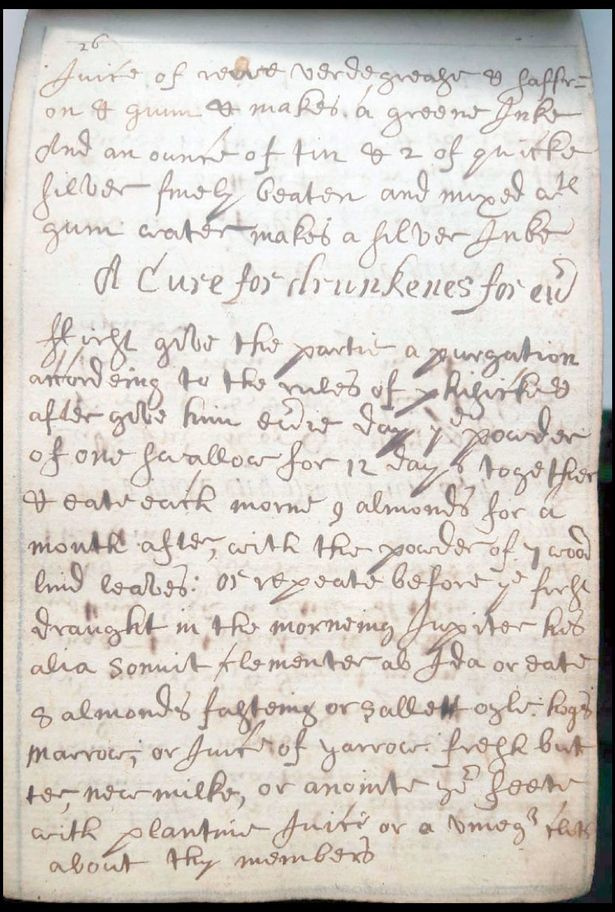 26
Juice of rewe verdegrease & saffr=
on & gumm & makes a greene Inke
And an ounce of tin & 2 of quicke
silver finely beaten and mixed wth
gum water makes a silver Inke
A Cure for drunkenes for evr
First give the partie a purgation
according to the rules of phisicke &
after give him evrie day ye powder
of one swallow for 12 days together
& eate each morne 9 almonds for a
month after, with the powder of 7 wood
bind leaves: or repeate before ye first
draught in the morneing Jupiter his
alia sonuit clementer ab Ida or eate
8 almonds fasteing or sallett oyle hogs
marrow, or Juice of yarrow fresh but
ter, new milke, or anointe yr feete
with plantine Juice or a vinegr
about thy members